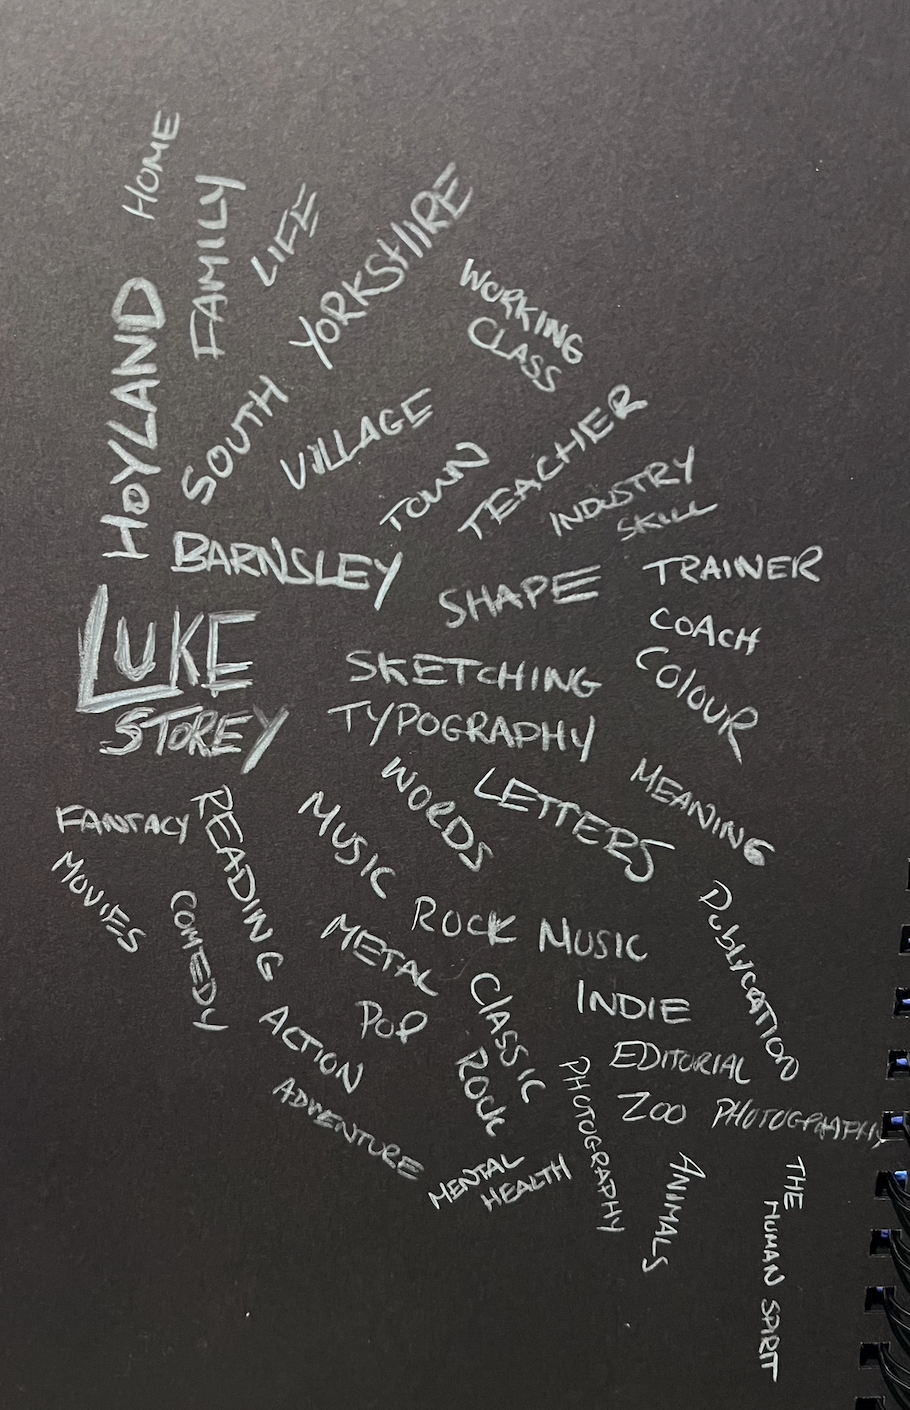 HOME
FAMILY
LIFE
HOYLAND
SOUTH YORKSHIRE
WORKING
CLASS
VILLAGE
TOWN
TEACHER
INDUSTRY
SKILL
BARNSLEY
SHAPE
TRAINER
COACH
COLOUR
LUKE
STOREY
SKETCHING
TYPOGRAPHY
WORDS
LETTERS
MEANING
FANTACY
READING
MUSIC
MOVIES
COMEDY
METAL
ROCK MUSIC
PUBLICATION
ACTION
POP
CLASSIC
ROCK
INDIE
EDITORIAL
ADVENTURE
PHOTOGRAPHY
ZOO PHOTOGRAPHY
MENTAL
HEALTH
ANIMALS
THE
HUMAN SPIRIT